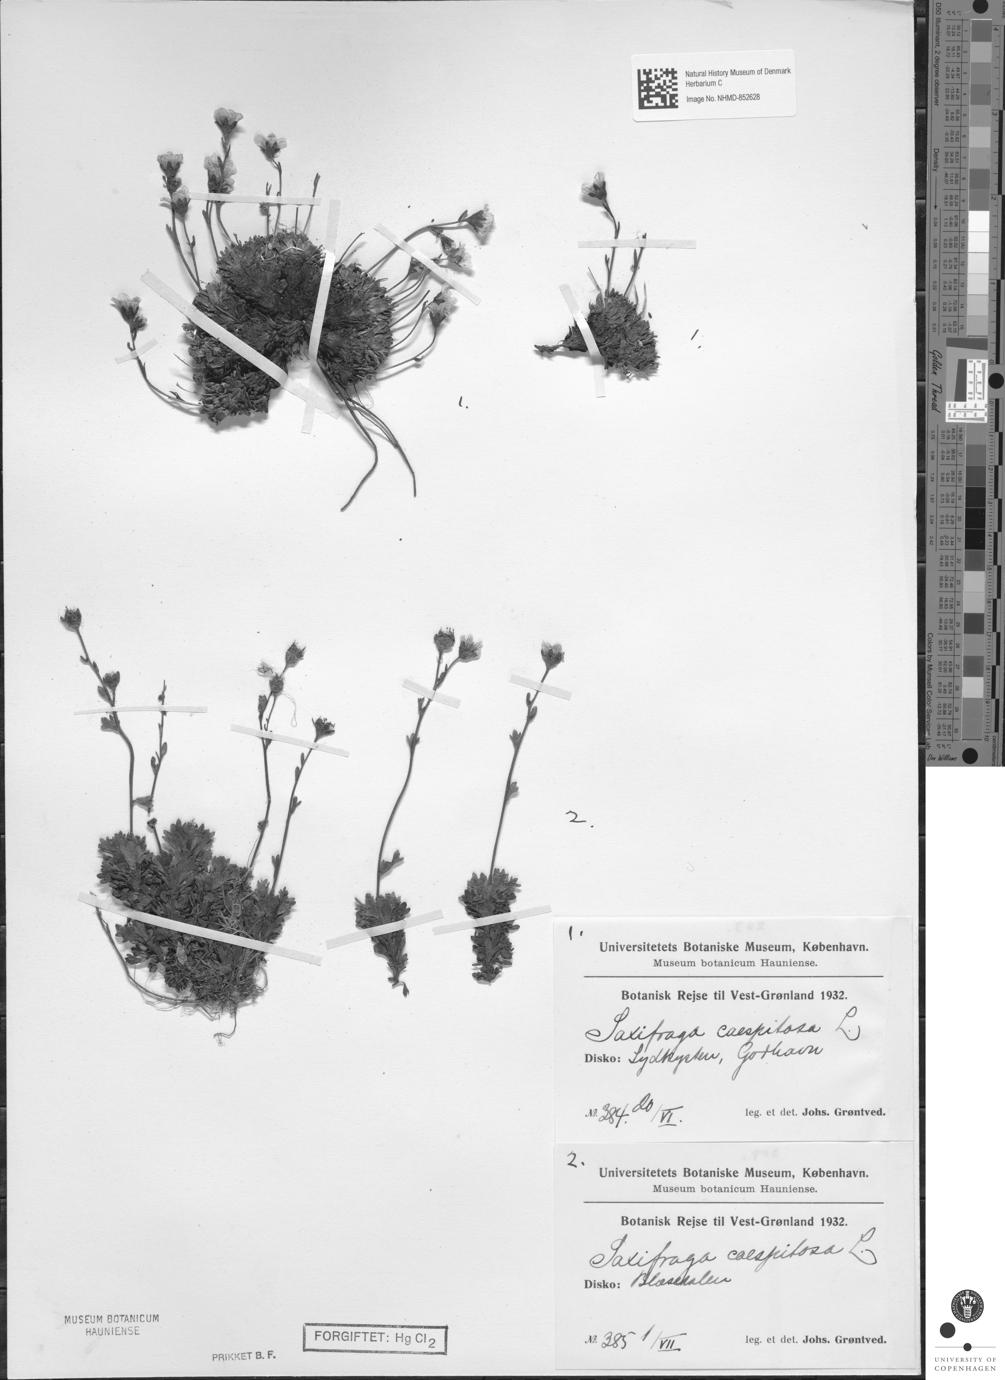 Natural History Museum of Denmark
Herbarium C
Image No. NHMD-852628
1.
1.
2.
1.
Universitetets Botaniske Museum, København.
Museum botanicum Hauniense.
Botanisk Rejse til Vest-Grønland 1932.
Saxifraga caespitosa L.
Disko: Sydkysten, Godhavn
№ 384. 20/VI.
leg. et det. Johs. Grøntved.
2.
Universitetets Botaniske Museum, København.
Museum botanicum Hauniense.
Botanisk Rejse til Vest-Grønland 1932.
Saxifraga caespitosa L.
Disko: Blæsedalen
№ 385 1/VII
leg. et det. Johs. Grøntved.
MUSEUM BOTANICUM
HAUNIENSE
PRIKKET B. F.
FORGIFTET: Hg Cl2
D50 Illuminant, 2 degree observer
Density
Golden Thread
Colors by Munsell Color Services Lab
Don Williams
UNIVERSITY OF
COPENHAGEN